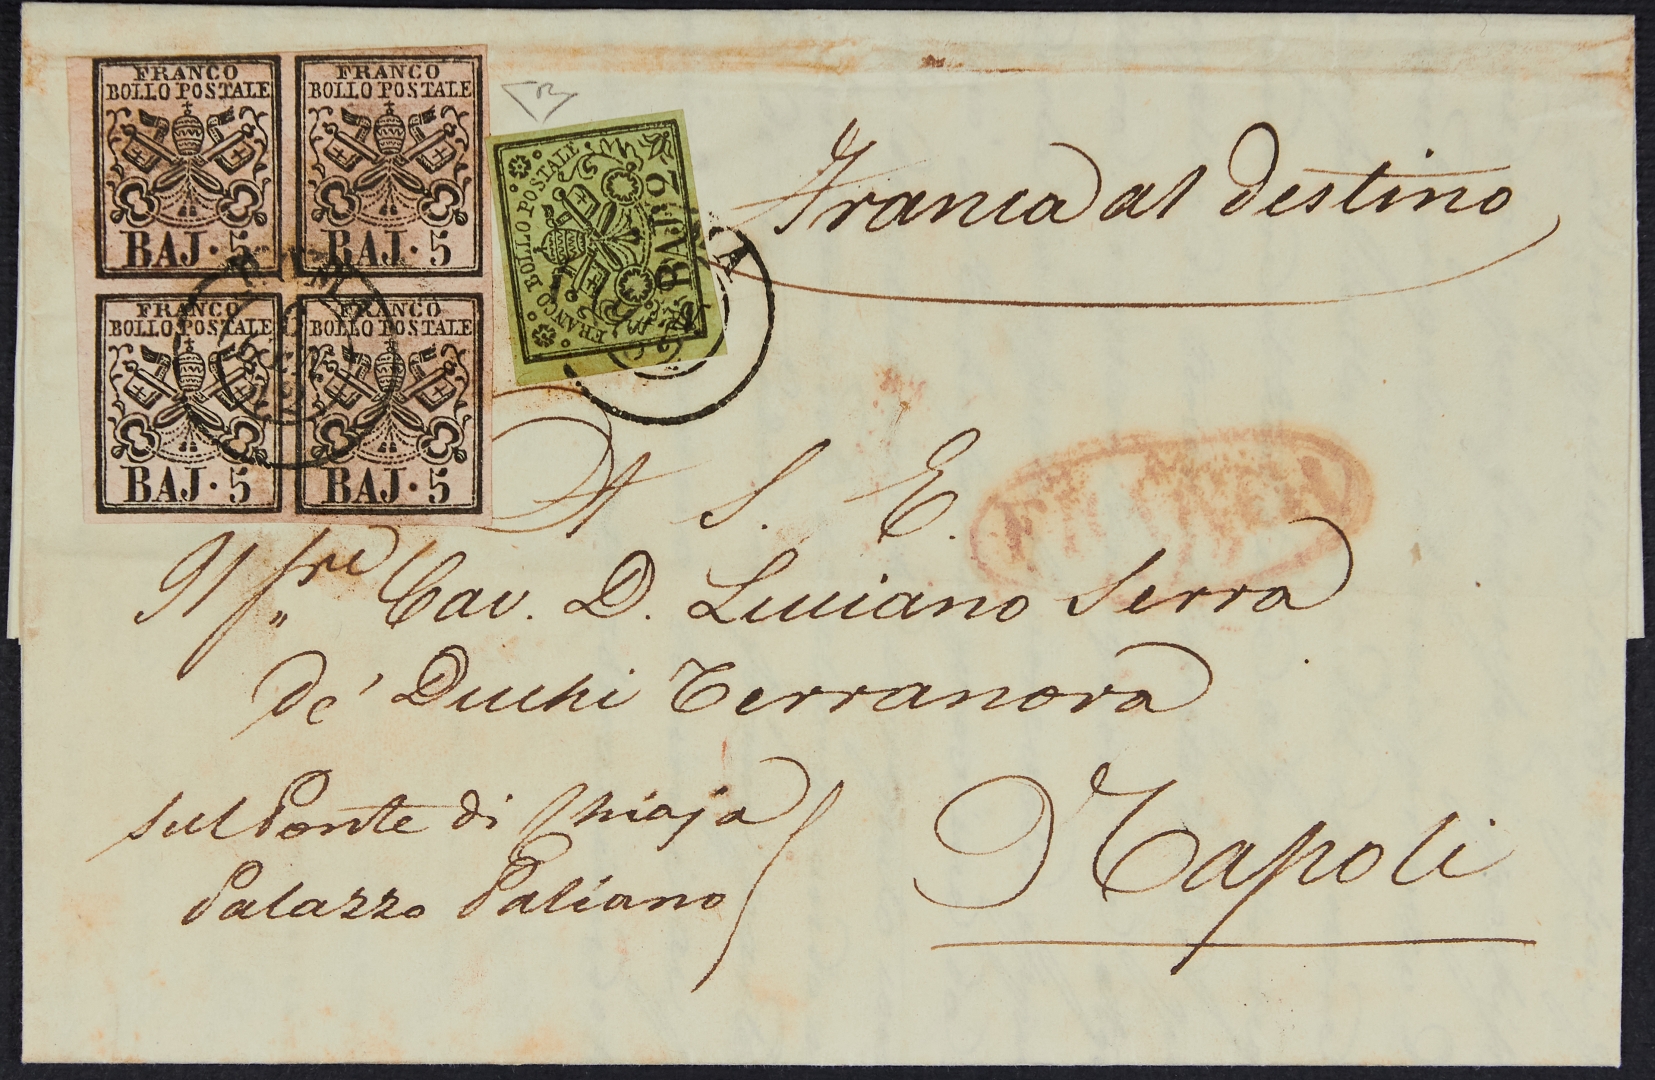 FRANCO
BOLLO POSTALE
BAJ · 5
FRANCO
BOLLO POSTALE
BAJ · 5
FRANCO
BOLLO POSTALE
BAJ · 5
FRANCO
BOLLO POSTALE
BAJ · 5
FRANCO BOLLO POSTALE
BAJ 2
Franca al destino
A S. E.
Cav. D. Luciano Serra
de' Duchi Terranova
sul Ponte di Chiaja
Palazzo Paliano
Napoli